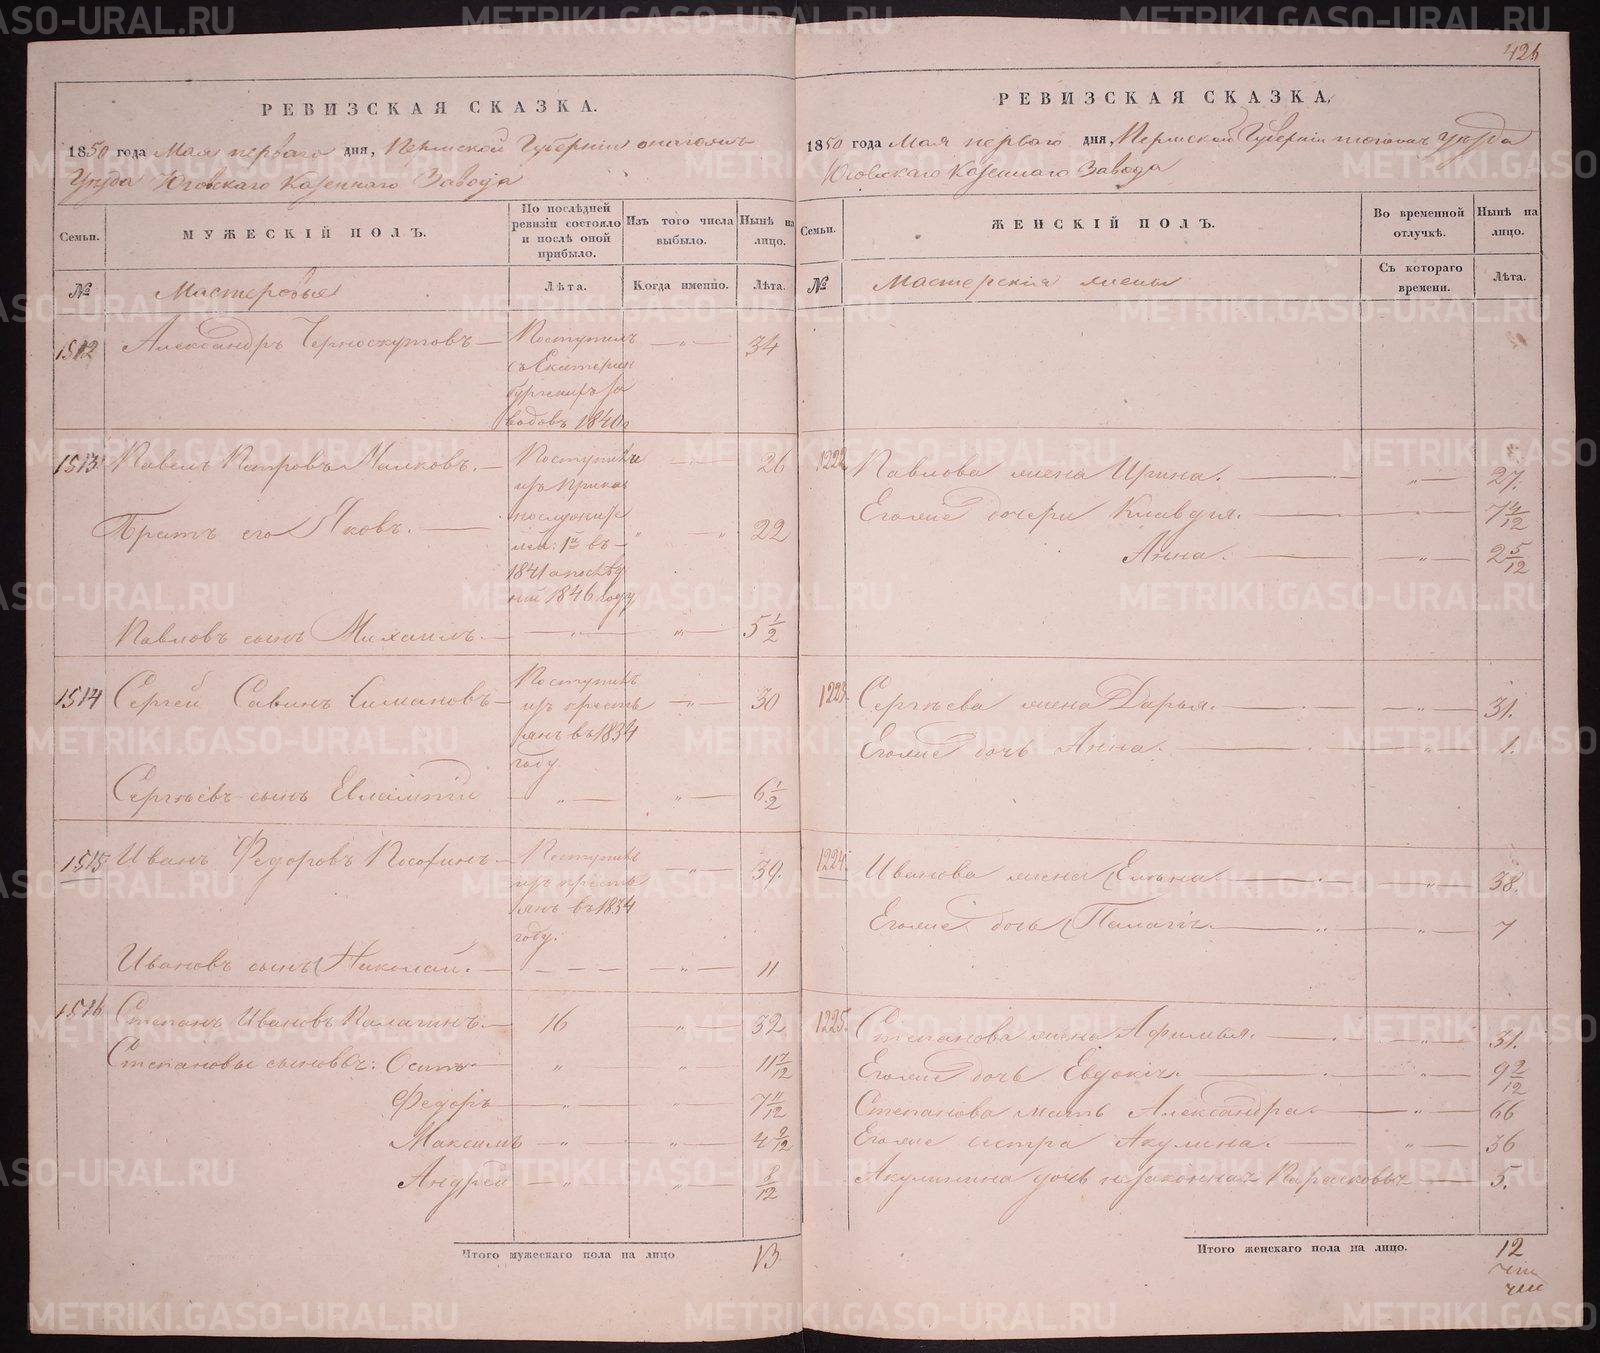 426
РЕВИЗСКАЯ СКАЗКА.
1850 года Мая перваго дня, Пермской Губернiи онагожъ
Уѣзда Юговскаго Казеннаго Завода
Семьи.
МУЖЕСКІЙ ПОЛЪ.
По послѣдней ревизіи состояло и послѣ оной прибыло.
Изъ того числа выбыло.
Нынѣ на лицо.
№
Мастеровыя
Лѣта.
Когда именно.
Лѣта.
1512 Александръ Черноскутовъ — Поступилъ — „ — 34
съ Екатерин
бургскихъ за
водовъ 1840г
1513 Павелъ Петровъ Малковъ. — Поступили — 26
изъ
Братъ его Яковъ. — 22
1й въ
1841 а послѣд
ній 1846 году
Павловъ сынъ Михаилъ. — „ — „ — 5 1/2
1514 Сергей Савинъ Симановъ — Поступилъ — „ — 30
изъ кресть
янъ въ 1834
году.
Сергѣевъ сынъ Евлампій — „ — „ — 6 1/2
1515 Иванъ Федоровъ Посохинъ — Поступилъ — „ — 39.
изъ кресть
янъ въ 1834
году.
Ивановъ сынъ Николай. — — — — „ — 11
1516 Степанъ Ивановъ Палагинъ. — 16 — „ — 32
Степановы сыновья: Осипъ — „ — „ — 11 7/12
Федоръ — „ — „ — 7 11/12
Максимъ — „ — „ — 4 9/12
Андрей — „ — „ — 8/12
Итого мужескаго пола на лицо 13
РЕВИЗСКАЯ СКАЗКА,
1850 года Мая перваго дня, Пермской Губерніи тогожъ Уѣзда
Юговскаго Казеннаго Завода
Семьи.
ЖЕНСКІЙ ПОЛЪ.
Во временной отлучкѣ.
Нынѣ на лицо.
№
Мастерскія жены
Съ котораго времени.
Лѣта.
1222 Павлова жена Ирина. — „ — 27.
Егоже дочери Клавдія. — „ — 7 4/12
Анна. — „ — 2 5/12
1223 Сергѣева жена Дарья. — „ — 31.
Егоже дочь Анна. — „ — 1.
1224 Иванова жена Елена. — „ — 38.
Егоже дочь Палагія. — „ — 7
1225. Степанова жена Афимья. — „ — 31.
Егоже дочь Евдокія. — „ — 9 2/12
Степанова мать Александра. — „ — 66
Егоже сестра Акулина. — „ — 36
Акулинина дочь незаконная Парасковья — 5.
Итого женскаго пола на лицо. 12
METRIKI.GASO-URAL.RU